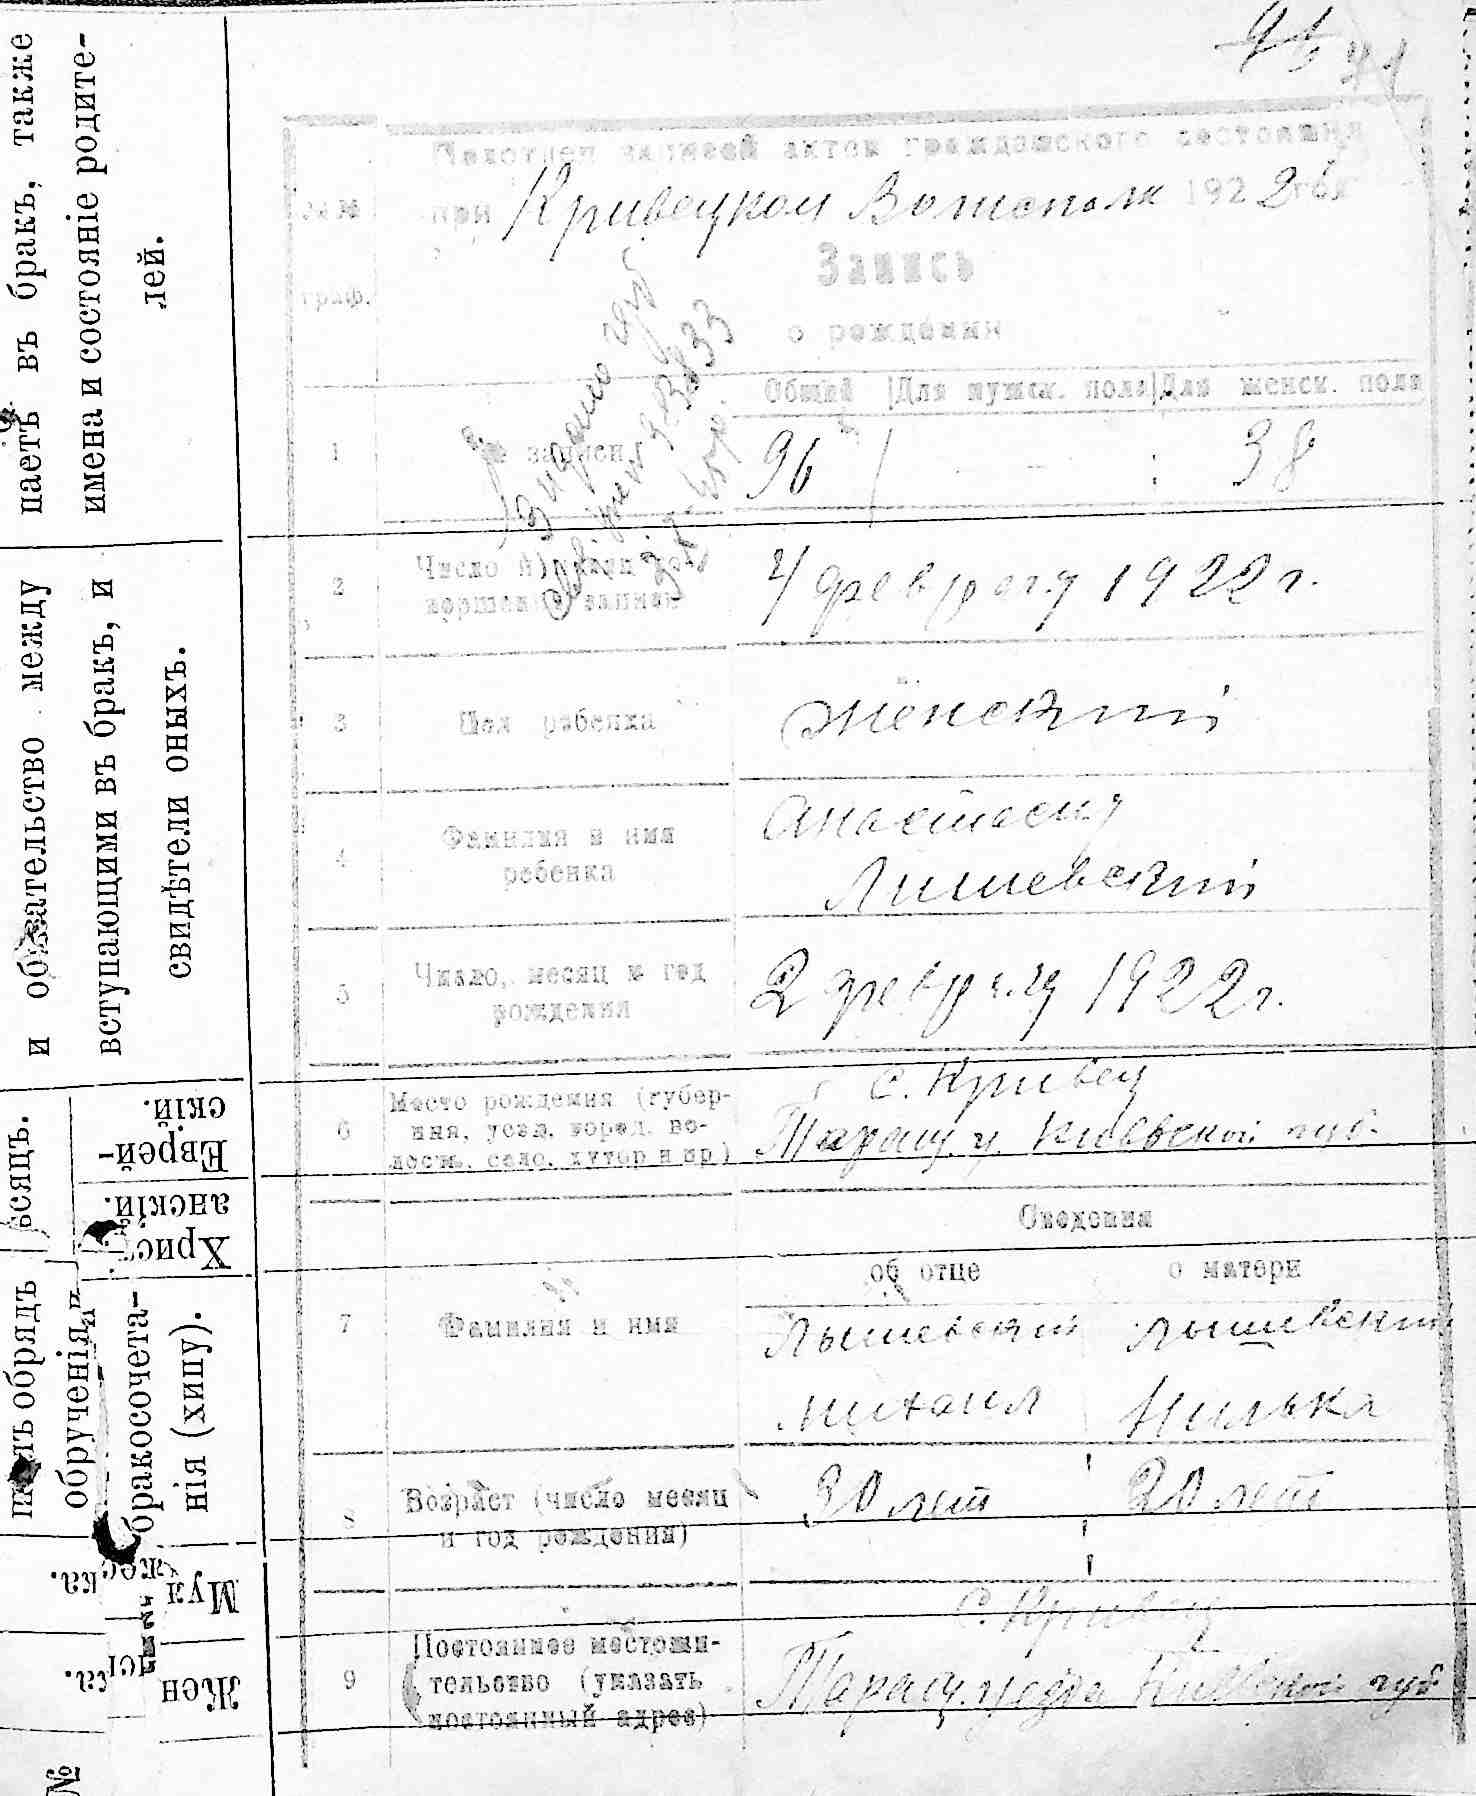 паетъ въ бракъ, также
имена и состояніе родите-
лей.
и обязательство между
вступающими въ бракъ, и
свидѣтели оныхъ.
Еврей-
скій.
Христ
анскій.
обрядъ
обрученія и
бракосочета-
нія (хипу).
Муж
Жен
№
Подотдел записей актов гражданского состояния
№№
граф.
при Кривецком Волисполк 1922 год
Запись
о рождении
Общий | Для мужск. пола | Для женск. пола
1 № записи 96 — 38
2 Число
записи
4 феврегу 1922 г.
3 Пол ребенка женский
4 Фамилия и имя
ребенка
Анастасиу
Лишевский
5 Число, месяц и год
рождения
2 февраля 1922 г.
6 Место рождения (губер-
ния, уезд, город, во-
лость, село, хутор и пр.)
с. Кривец
Таращ. у. Киевской губ.
Сведения
об отце о матери
7 Фамилия и имя
Лышевский Лышевский
Михаил Нилька
8 Возраст (число месяц
и год рождения)
30 лет 20 лет
9 Постоянное местожи-
тельство (указать
постоянный адрес)
с. Кривец
Таращ. уезда Киевской губ